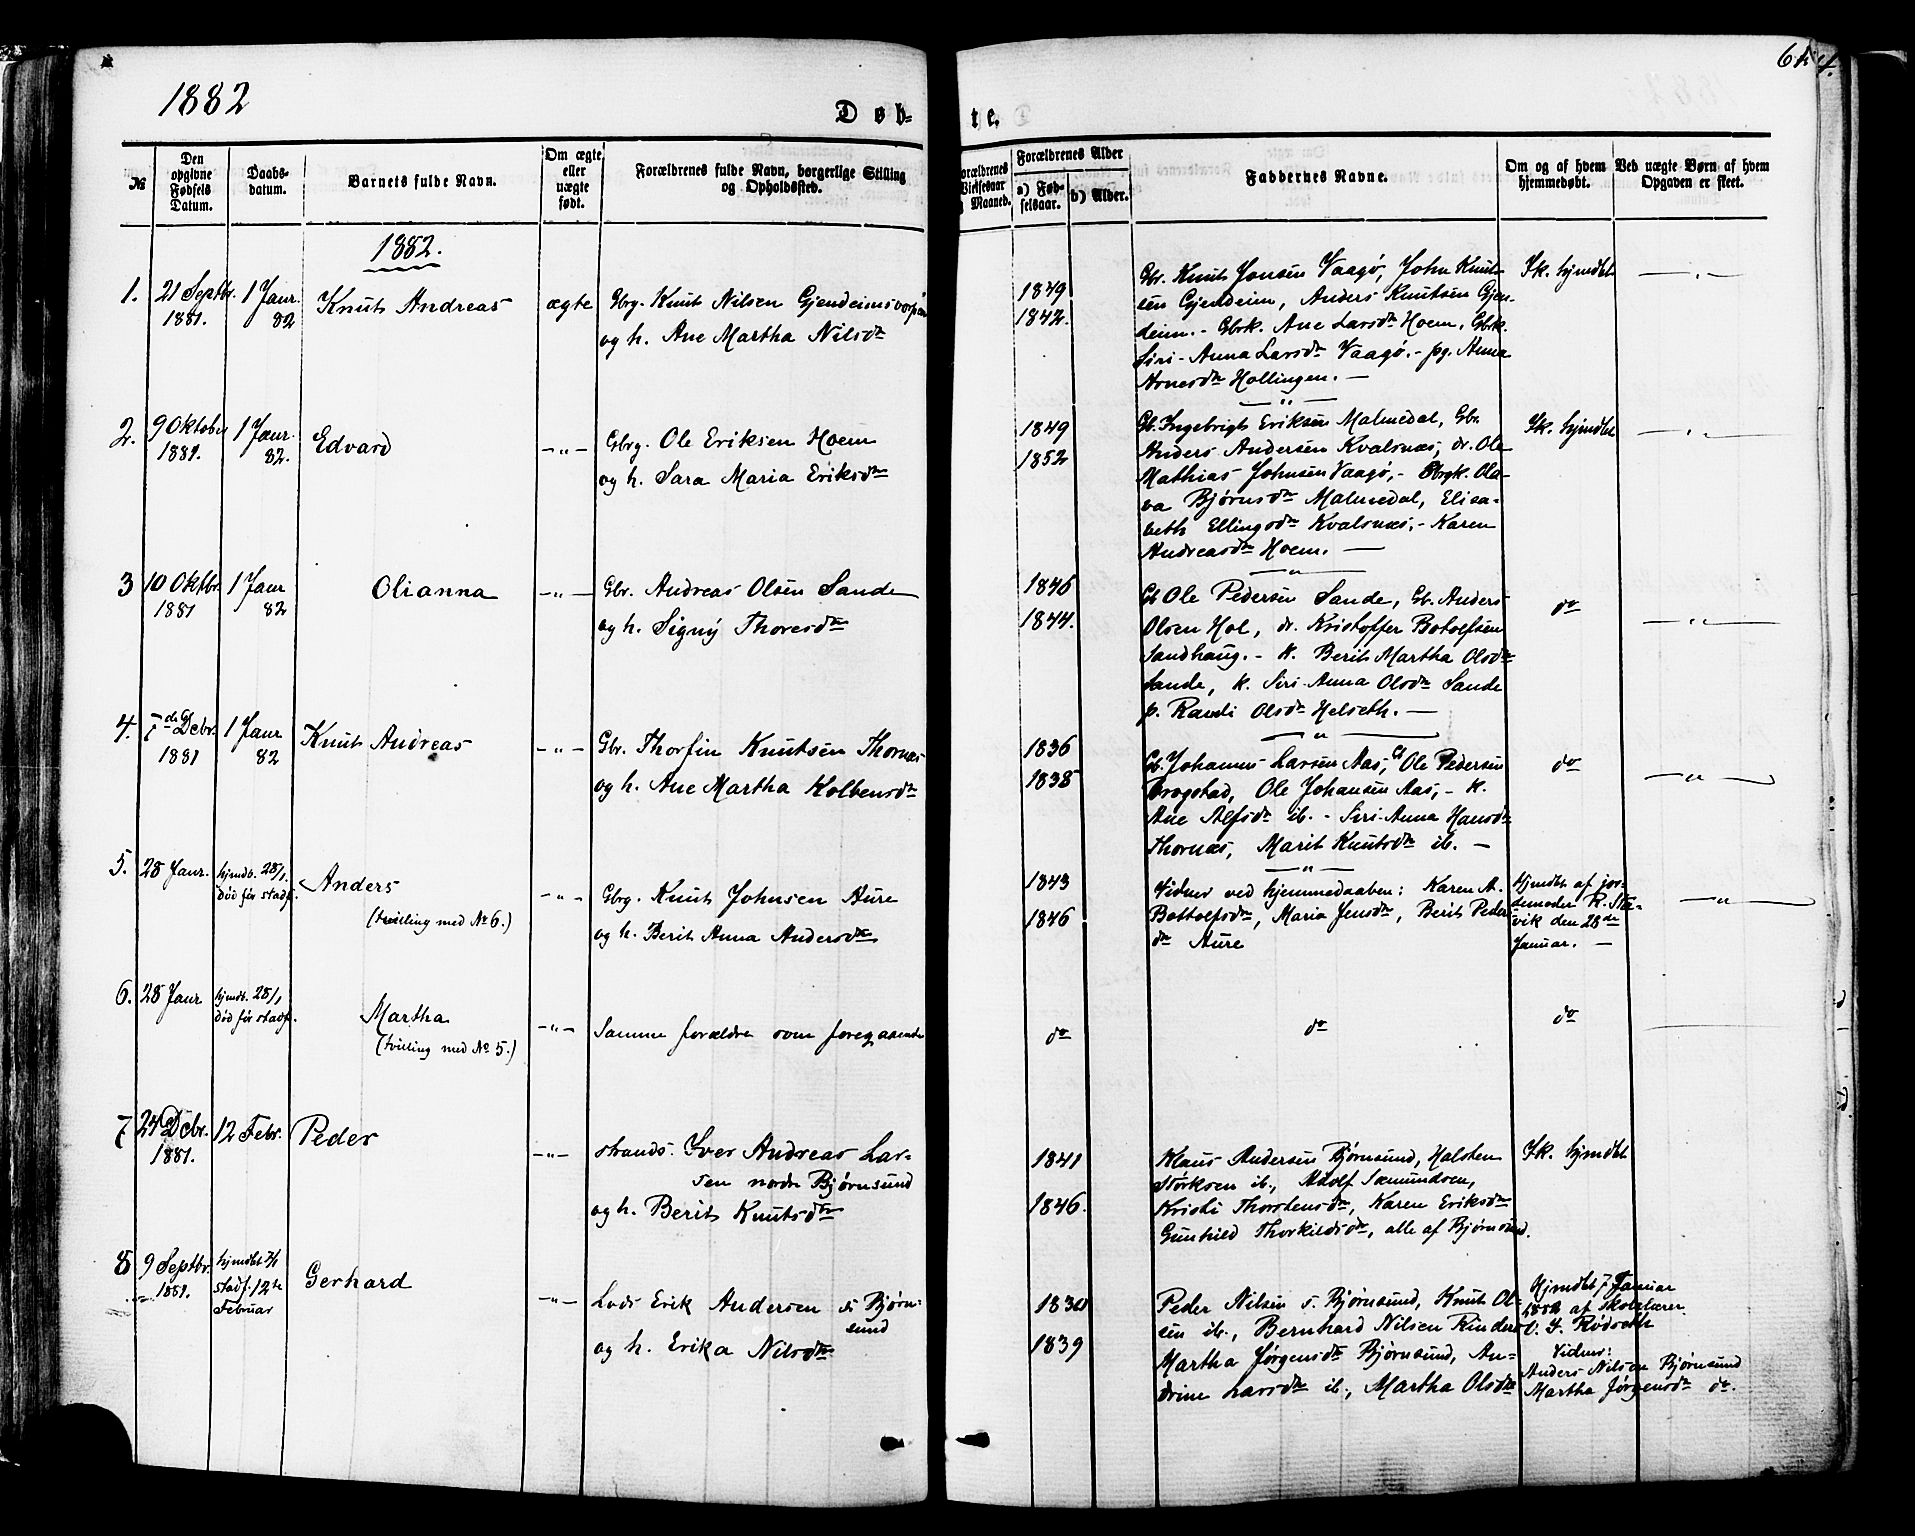 1882
Døb-
te.
64.
№
Den opgivne Fødsels Datum.
Daabs-datum.
Barnets fulde Navn.
Om ægte eller uægte født.
Forældrenes fulde Navn, borgerlige Stilling og Opholdssted.
Forældrenes Vielsesaar Maaned.
Forældrenes Alder
a) Fød-selsaar.
b) Alder.
Faddernes Navne.
Om og af hvem hjemmedøbt.
Ved uægte Børn af hvem Opgaven er skeet.
1882.
1.
21 Septbr.
1881.
1 Janr.
82
Knut Andreas
ægte
Gbrg. Knut Nilsen
og h. Ane Martha Nilsdtr
1849
1842.
Gbr. Knut Jonsen Vaagø, John Knut-
sen Gjendeim, Anders Knutsen Gjen-
deim. - Gbrk. Ane Larsdtr Hoem, Gbrk.
Siri-Anna Larsdtr Vaagø. - pg. Anna
Arnesdtr Hollingen. —
Ik. hjmdbt
— „ —
2.
9 Oktober
1881.
1 Janr.
82.
Edvard
— „ —
Gbrg. Ole Eriksen Hoem
og h. Sara Maria Eriksdtr
1849
1852
Gb. Ingebrigt Eriksen Malmedal, Gbr.
Anders Andersen Kvalsnæs, dr. Ole
Mathias Johnsen Vaagø, - Gbrgk. Ola-
va Bjørnsdtr Malmedal, Elisa-
beth Ellingsdtr Kvalsnæs. - Karen
Andreasdtr Hoem. —
Ik. hjmdbt
— „ —
3
10 Oktbr.
1881
1 Janr
82
Olianna
— „ —
Gbr. Andreas Olsen Sande
og h. Signy Thoresdtr
1846
1844.
Gb Ole Pedersen Sande, Gb. Anders
Olsen Hol, dr. Kristoffer Botolfsen
Sandhaug. - K. Berit Martha Olsdtr
Sande, k. Siri-Anna Olsdtr Sande
p. Randi Olsdtr Helseth. —
do
— „ —
4.
7de Debr.
1881
1 Janr
82
Knut Andreas
— „ —
Gbr. Thorfin Knutsen Thornæs
og h. Ane Martha Kolbensdtr
1836
1838
Gb. Johannes Larsen Aas, Gb Ole Pedersen
Drogstad, Ole Johansen Aas, - K.
Ane Alfsdtr ib. - Siri-Anna Hansdtr
Thornæs, Marit Knutsdtr ib. —
do
— „ —
5.
28 Janr.
hjmdb. 28/1
død før stadf.
Anders
(tvilling med No 6.)
— „ —
Gbrg. Knut Johnsen Aure
og h. Berit Anna Andersdtr
1843
1846
Vidner ved hjemmedaaben: Karen A.
Bottolfsdtr, Maria Jensdtr, Berit Peders
dtr Aure
Hjmdbt af jor-
demoder R. Sta-
vik den 28de
Januar. —
— „ —
6.
28 Janr
hjmdb. 28/1
død før stadf.
Martha
(tvilling med No 5.)
— „ —
Samme forældre som foregaaende
do
do
do
7
24 Debr.
1881.
12 Febr.
Peder
— „ —
Strands. Iver Andreas Lar-
sen nordre Bjørnsund
og h. Berit Knutsdtr
1841
1846.
Klaus Andersen Bjørnsund, Halsten
Størksen ib., Adolf Sæmundsen,
Kristi Thorstensdtr, Karen Eriksdtr
Gunhild Thorkildsdtr, alle af Bjørnsund.
Ik. hjmdbt
8
9 Septbr.
1881.
hjmdbt 7/1
stadf. 12te
Februar
Gerhard
— „ —
Lods Erik Andersen s. Bjørn-
sund
og h. Erika Nilsdtr
1839
Peder Nilsen s. Bjørnsund, Knut Ol-
sen ib., Bernhard Nilsen
Martha Jørgensdtr Bjørnsund, An-
drine Larsdtr ib., Martha Olsdtr
Hjmdbt 7 Januar
1882 af skolelærer
O. I. Rødseth
Vidner:
Anders Nilsen Bjørnsund
Martha Jørgensdtr do.